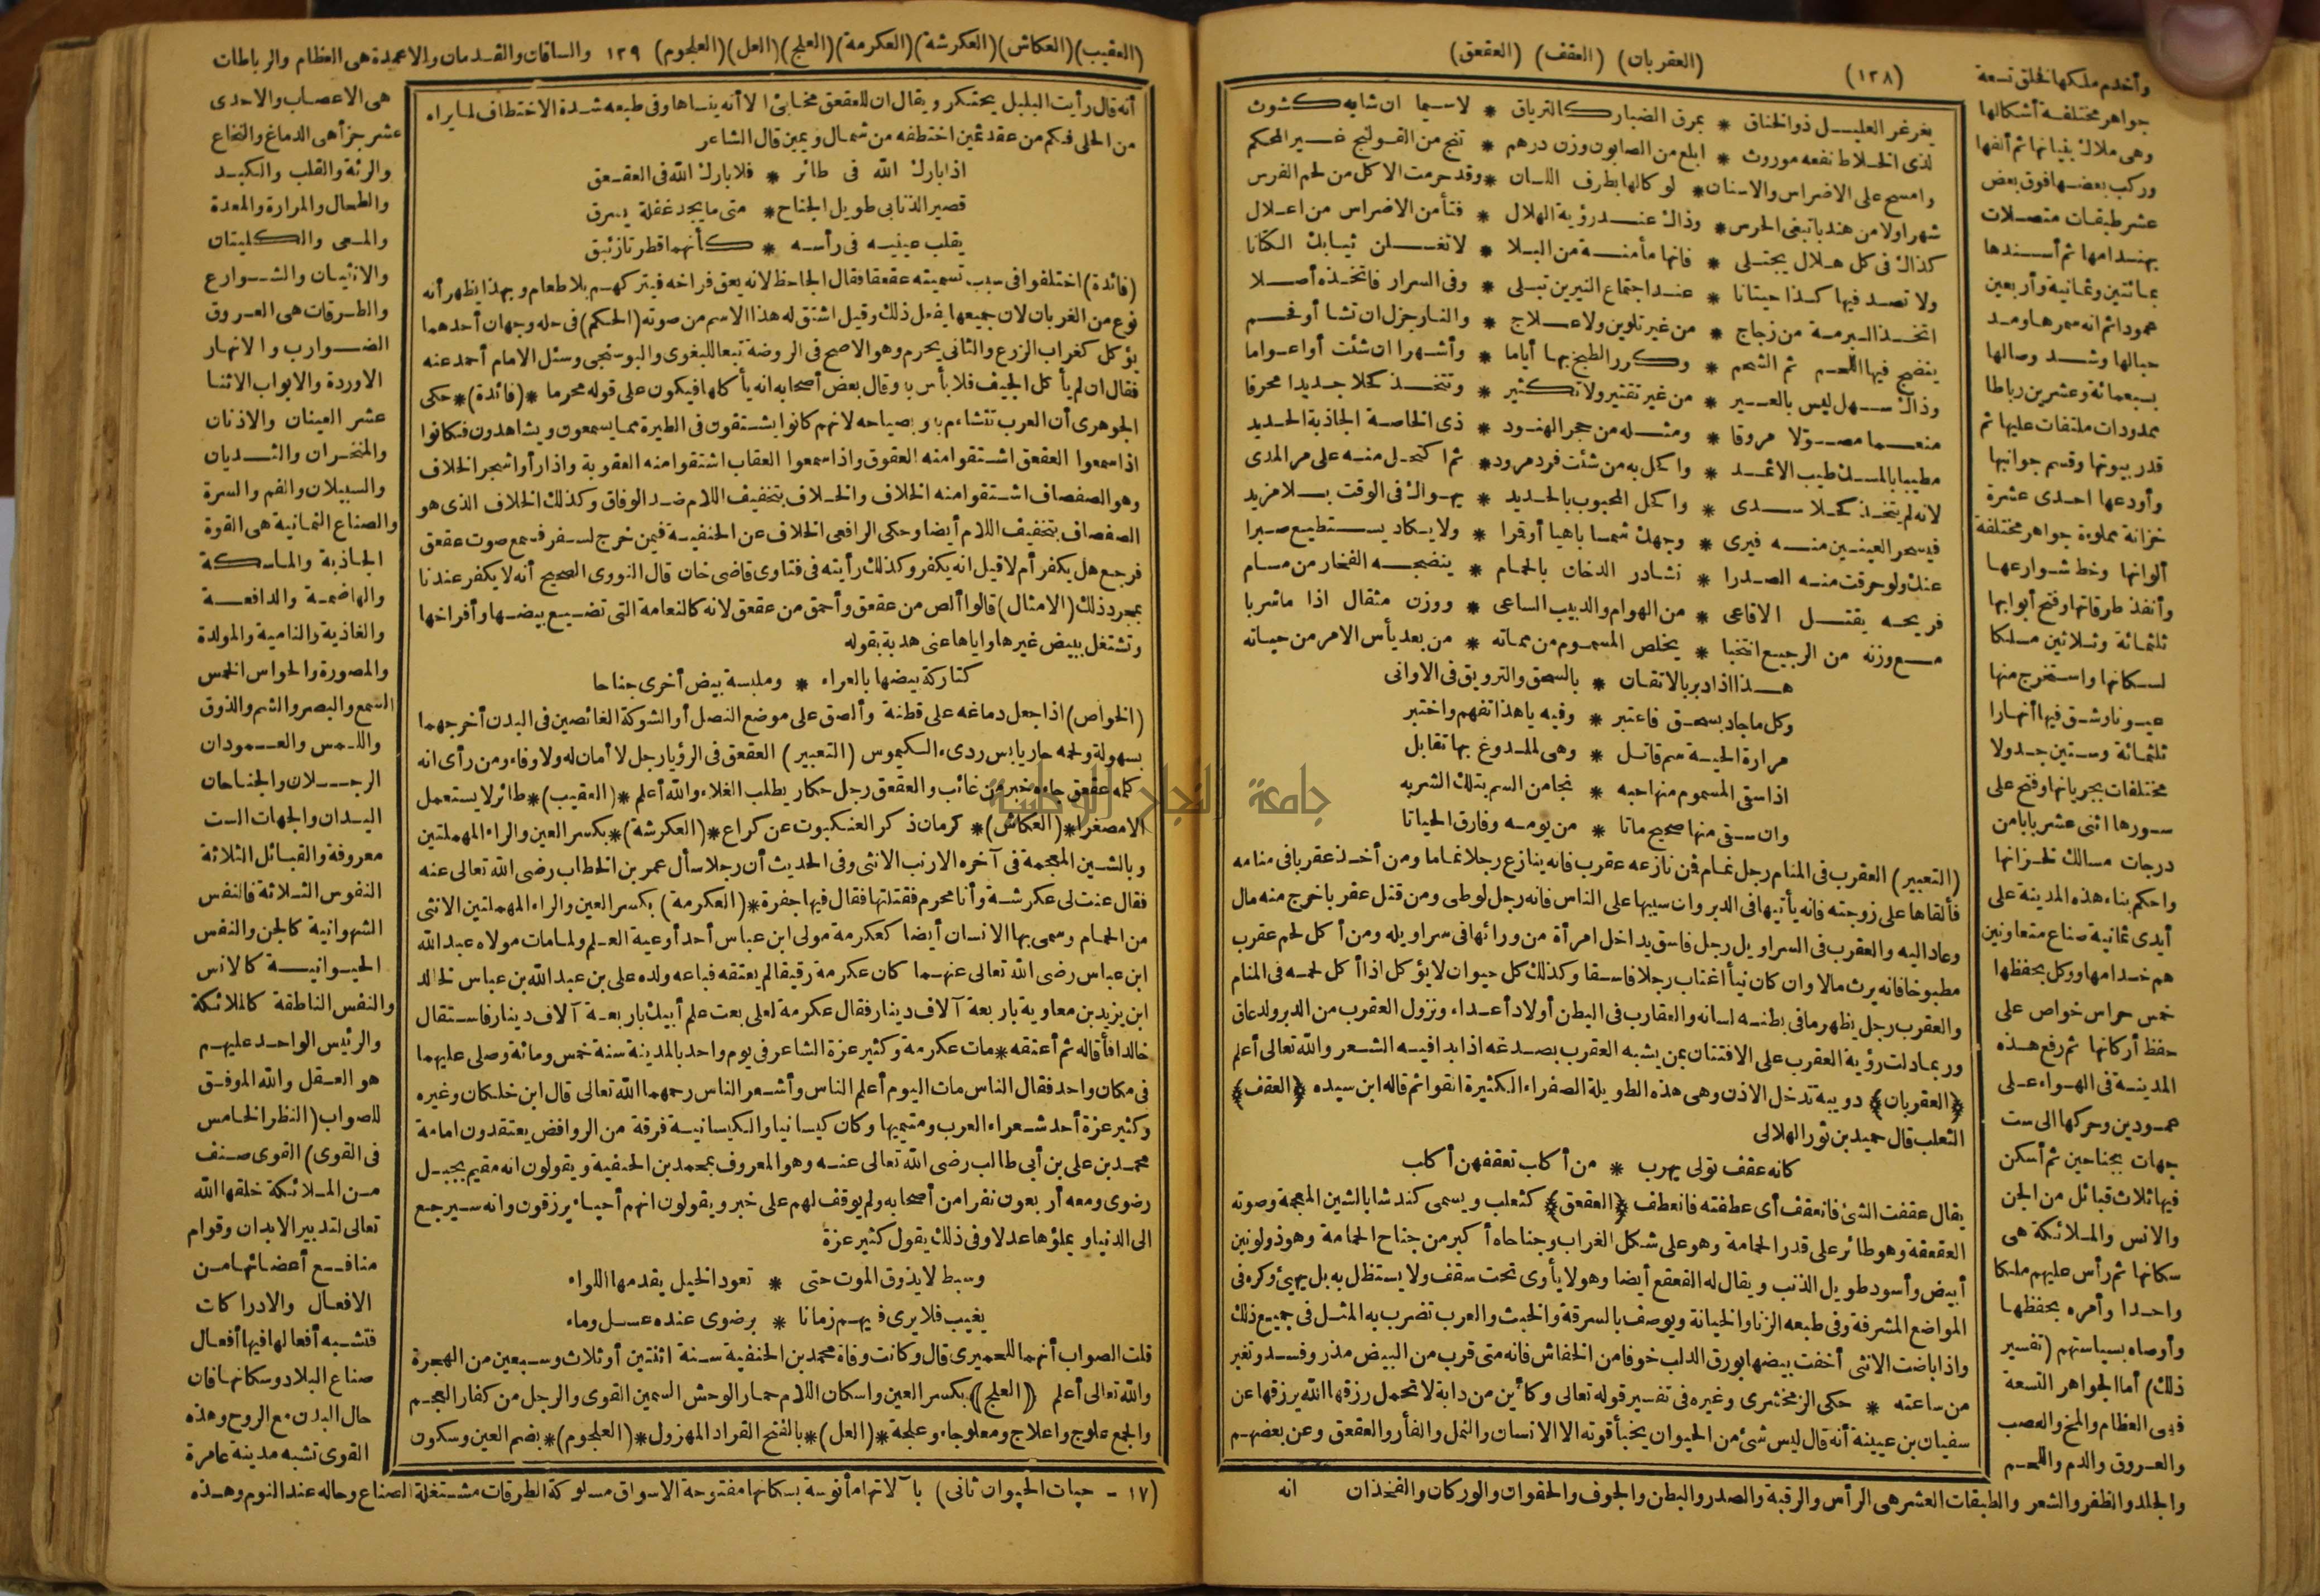 (العقربان) (العقف) (العقعق)
(١٣٨)
يغرغر العليل ذو الخناق * بمرق الضبارك الترياق * لاسيما ان شابه كشوث
لذى الخلاط نفعه موروث * ابلع من الصابون وزن درهم * تنج من القولنج غير المحكم
وامسح على الاضراس والاسنان * لو كالها بطرف اللسان * وقد حرمت الاكل من لحم الفرس
شهرا ولا من هند باتبغى الحرس * وذاك عند رؤية الهلال * فتأمن الاضراس من اعلال
كذاك فى كل هلال يجتلى * فانها مأمنة من البلا * لا تغسلن ثيابك الكتانا
ولا تصد فيها كذا حيتانا * عند اجتماع النيرين تبلى * وفى السرار فاتخذه أصلا
اتخذ البرمة من زجاج * من غير تلوين ولا علاج * والنار جزل ان تشا أو فحم
ينضج فيها اللحم ثم الشحم * وكرر الطبخ بها أياما * وأشهرا ان شئت أو اعواما
وذاك سهل ليس بالعسير * من غير تقتير ولا تكثير * وتتخذ كحلا جديدا محرقا
منعما مصولا مروقا * ومثله من حجر الهنود * ذى الخاصة الجاذبة الحديد
مطيبا بالمسك طيب الاثمد * واكحل به من شئت فرد مرود * ثم اكتحل منه على مر المدى
لانه لم يتخذ كحلا سدى * واكحل المحبوب بالحديد * يهواك فى الوقت بلا مزيد
فيسحر العينين منه فيرى * وجهك شمسا باهيا أو قمرا * ولا يكاد يستطيع صبرا
عنك ولو حرقت منه الصدرا * نشادر الدخان بالحمام * ينضجه الفخار من مسام
فريحه يقتل الافاعى * من الهوام والدبيب الساعى * ووزن مثقال اذا ما شربا
مع وزنه من الرجيع انتخبا * يخلص المسموم من مماته * من بعد يأس الامر من حياته
هذا اذا دبر بالاتقان * بالسحق والترويق فى الاوانى
وكل ما جاد بسحق فاعتبر * وفيه يا هذا تفهم واختبر
مرارة الحية سم قاتل * وهى لملدوغ بها تقابل
اذا سقى المسموم منها حبه * نجا من السم بتلك الشربه
وان سقى منها صحيح ماتا * من يومه وفارق الحياتا
(التعبير) العقرب فى المنام رجل نمام فمن نازعه عقرب فانه ينازع رجلا نماما ومن أخذ عقربا فى منامه
فألقاها على زوجته فانه يأتيها فى الدبر وان سيبها على الناس فانه رجل لوطى ومن قتل عقربا خرج منه مال
وعاد اليه والعقرب فى السراويل رجل فاسق يداخل امرأة من ورائها فى سراويله ومن أكل لحم عقرب
مطبوخا فانه يرث مالا وان كان نيأ اغتاب رجلا فاسقا وكذلك كل حيوان لا يؤكل اذا أكل لحمه فى المنام
والعقرب رجل يظهر ما فى بطنه لسانه والعقارب فى البطن أولاد أعداء ونزول العقرب من الدبر ولد عاق
وربما دلت رؤية العقرب على الافتتان بمن يشبه العقرب بصدغه اذا بدا فيه الشعر والله تعالى أعلم
﴿العقربان﴾ دويبة تدخل الاذن وهى هذه الطويلة الصفراء الكثيرة القوائم قاله ابن سيده ﴿العقف﴾
الثعلب قال حميد بن ثور الهلالى
كانه عقف تولى يهرب * من أكلب تعقفهن أكلب
يقال عقفت الشئ فانعقف أى عطفته فانعطف ﴿العقعق﴾ كثعلب ويسمى كندشا بالشين المعجمة وصوته
العقعقة وهو طائر على قدر الحمامة وهو على شكل الغراب وجناحاه أكبر من جناح الحمامة وهو ذو لونين
أبيض وأسود طويل الذنب ويقال له القعقع أيضا وهو لا يأوى تحت سقف ولا يستظل به بل يهيئ وكره فى
المواضع المشرفة وفى طبعه الزنا والخيانة ويوصف بالسرقة والخبث والعرب تضرب به المثل فى جميع ذلك
واذا باضت الانثى أخفت بيضها بورق الدلب خوفا من الخفاش فانه متى قرب من البيض مذر وفسد وتغير
من ساعته * حكى الزمخشرى وغيره فى تفسير قوله تعالى وكأين من دابة لا تحمل رزقها الله يرزقها عن
سفيان بن عيينة أنه قال ليس شئ من الحيوان يخبأ قوته الا الانسان والنمل والفأر والعقعق وعن بعضهم
انه
وأخدم ملكها لخلق تسعة
جواهر مختلفة أشكالها
وهى ملاك بنيانها ثم ألفها
وركب بعضها فوق بعض
عشر طبقات متصلات
بهندامها ثم أسندها
بمائتين وثمانية وأربعين
عمودا ثم انه سمرها ومد
حبالها وشد وصالها
بسبعمائة وعشرين رباطا
ممدودات ملتفات عليها ثم
قدر بيوتها وقسم جوانبها
وأودعها احدى عشرة
خزانة مملوءة جواهر مختلفة
ألوانها وخط شوارعها
وأنفذ طرقاتها وفتح أبوابها
ثلثمائة وثلاثين مسلكا
لسكانها واستخرج منها
عيونا وشق فيها أنهارا
ثلثمائة وستين جدولا
مختلفات بجريانها وفتح على
سورها اثنى عشر بابا من
درجات مسالك لخزانها
واحكم بناء هذه المدينة على
أيدى ثمانية صناع متعاونين
هم خدامها ووكل بحفظها
خمس حراس خواص على
حفظ أركانها ثم رفع هذه
المدينة فى الهواء على
عمودين وحركها الى ست
جهات بجناحين ثم أسكن
فيها ثلاث قبائل من الجن
والانس والملائكة هى
سكانها ثم رأس عليهم ملكا
واحدا وأمره بحفظها
وأوصاه بسياستهم (تفسير
ذلك) أما الجواهر التسعة
فهى العظام والمخ والعصب
والعروق والدم واللحم
والجلد والظفر والشعر والطبقات العشر هى الرأس والرقبة والصدر والبطن والجوف والحقوان والوركان والفخذان
(العقيب) (العكاش) (العكرشة) (العكرمة) (العلج) (العل) (العلجوم) ١٣٩ والساقات والقدمان والاعمدة هى العظام والرباطات
أنه قال رأيت البلبل يحتكر ويقال ان للعقعق مخابئ الا أنه ينساها وفى طبعه شدة الاختطاف لما يراه
من الحلى فكم من عقد ثمين اختطفه من شمال ويمين قال الشاعر
اذا بارك الله فى طائر * فلا بارك الله فى العقعق
قصير الذنابى طويل الجناح * متى ما يجد غفلة يسرق
يقلب عينيه فى رأسه * كأنهما قطرتا زئبق
(فائدة) اختلفوا فى سبب تسميته عقعقا فقال الجاحظ لانه يعق فراخه فيتركهم بلا طعام وبهذا يظهر أنه
نوع من الغربان لان جميعها يفعل ذلك وقيل اشتق له هذا الاسم من صوته (الحكم) فى حله وجهان أحدهما
يؤكل كغراب الزرع والثانى يحرم وهو الاصح فى الروضة تبعا للبغوى والبوسنجى وسئل الامام أحمد عنه
فقال ان لم يأكل الجيف فلا بأس به وقال بعض أصحابه انه يأكلها فيكون على قوله محرما * (فائدة) * حكى
الجوهرى أن العرب تتشاءم به وبصياحه لانهم كانوا يشتقون فى الطيرة مما يسمعون ويشاهدون فكانوا
اذا سمعوا العقعق اشتقوا منه العقوق واذا سمعوا العقاب اشتقوا منه العقوبة واذا رأوا شجر الخلاف
وهو الصفصاف اشتقوا منه الخلاف والخلاف بتخفيف اللام ضد الوفاق وكذلك الخلاف الذى هو
الصفصاف بتخفيف اللام أيضا وحكى الرافعى الخلاف عن الحنفية فيمن خرج لسفر فسمع صوت عقعق
فرجع هل يكفر أم لا قيل انه يكفر وكذلك رأيته فى فتاوى قاضى خان قال النووى الصحيح أنه لا يكفر عندنا
بمجرد ذلك (الامثال) قالوا ألص من عقعق وأحمق من عقعق لانه كالنعامة التى تضيع بيضها وأفراخها
وتشتغل ببيض غيرها واياها عنى هدبة بقوله
كتاركة بيضها بالعراء * وملبسة بيض أخرى جناحا
(الخواص) اذا جعل دماغه على قطنة وألصق على موضع النصل أو الشوكة الغائصين فى البدن أخرجهما
بسهولة ولحمه حار يابس ردىء الكيموس (التعبير) العقعق فى الرؤيا رجل لا أمان له ولا وفاء ومن رأى انه
كلمه عقعق جاءه خبر من غائب والعقعق رجل حكار يطلب الغلاء والله أعلم * (العقيب) * طائر لا يستعمل
الا مصغرا * (العكاش) * كرمان ذكر العنكبوت عن كراع * (العكرشة) * بكسر العين والراء المهملتين
وبالشين المعجمة فى آخره الارنب الانثى وفى الحديث أن رجلا سأل عمر بن الخطاب رضى الله تعالى عنه
فقال عنت لى عكرشة وأنا محرم فقتلتها فقال فيها جفرة * (العكرمة) بكسر العين والراء المهملتين الانثى
من الحمام وسمى بها الانسان أيضا كعكرمة مولى ابن عباس أحد أوعية العلم ولما مات مولاه عبد الله
ابن عباس رضى الله تعالى عنهما كان عكرمة رقيقا لم يعتقه فباعه ولده على بن عبد الله بن عباس لخالد
ابن يزيد بن معاوية باربعة آلاف دينار فقال عكرمة لعلى بعت علم أبيك باربعة آلاف دينار فاستقال
خالدا فأقاله ثم أعتقه * مات عكرمة وكثير عزة الشاعر فى يوم واحد بالمدينة سنة خمس ومائة وصلى عليهما
فى مكان واحد فقال الناس مات اليوم أعلم الناس وأشعر الناس رحمهما الله تعالى قال ابن خلكان وغيره
وكثير عزة أحد شعراء العرب ومتيميها وكان كيسانيا والكيسانية فرقة من الروافض يعتقدون امامة
محمد بن على بن أبى طالب رضى الله تعالى عنه وهو المعروف بمحمد بن الحنفية ويقولون انه مقيم بجبل
رضوى ومعه أربعون نفرا من أصحابه ولم يوقف لهم على خبر ويقولون انهم أحياء يرزقون وانه سيرجع
الى الدنيا ويملؤها عدلا وفى ذلك يقول كثير عزة
وسبط لا يذوق الموت حتى * تعود الخيل يقدمها اللواء
يغيب فلا يرى فيهم زمانا * برضوى عنده عسل وماء
قلت الصواب أنهما للحميرى قال وكانت وفاة محمد بن الحنفية سنة اثنتين أو ثلاث وسبعين من الهجرة
والله تعالى أعلم ((العلج)) بكسر العين واسكان اللام حمار الوحش السمين القوى والرجل من كفار العجم
والجمع علوج واعلاج ومعلوجاء وعلجة * (العل) * بالفتح القراد المهزول * (العلجوم) * بضم العين وسكون
هى الاعصاب والاحدى
عشر جزأ هى الدماغ والنخاع
والرئة والقلب والكبد
والطحال والمرارة والمعدة
والمعى والكليتان
والانثيان والشوارع
والطرقات هى العروق
الضوارب والانهار
الاوردة والابواب الاثنا
عشر العينان والاذنان
والمنخران والثديان
والسبيلان والفم والسرة
والصناع الثمانية هى القوة
الجاذبة والماسكة
والهاضمة والدافعة
والغاذية والنامية والمولدة
والمصورة والحواس الخمس
السمع والبصر والشم والذوق
واللمس والعمودان
الرجلان والجناحان
اليدان والجهات الست
معروفة والقبائل الثلاثة
النفوس الثلاثة فالنفس
الشهوانية كالجن والنفس
الحيوانية كالانس
والنفس الناطقة كالملائكة
والرئيس الواحد عليهم
هو العقل والله الموفق
للصواب (النظر الخامس
فى القوى) القوى صنف
من الملائكة خلقها الله
تعالى لتدبير الابدان وقوام
منافع أعضائها من
الافعال والادراكات
فتشبه أفعالها فيها أفعال
صناع البلاد وسكانها فان
حال البدن مع الروح وهذه
القوى تشبه مدينة عامرة
(١٧ - حيات الحيوان ثانى) بآلاتها مأنوسة بسكانها مفتوحة الاسواق مسلوكة الطرقات مشتغلة الصناع وحاله عند النوم وهذه
جامعة النجاح الوطنية